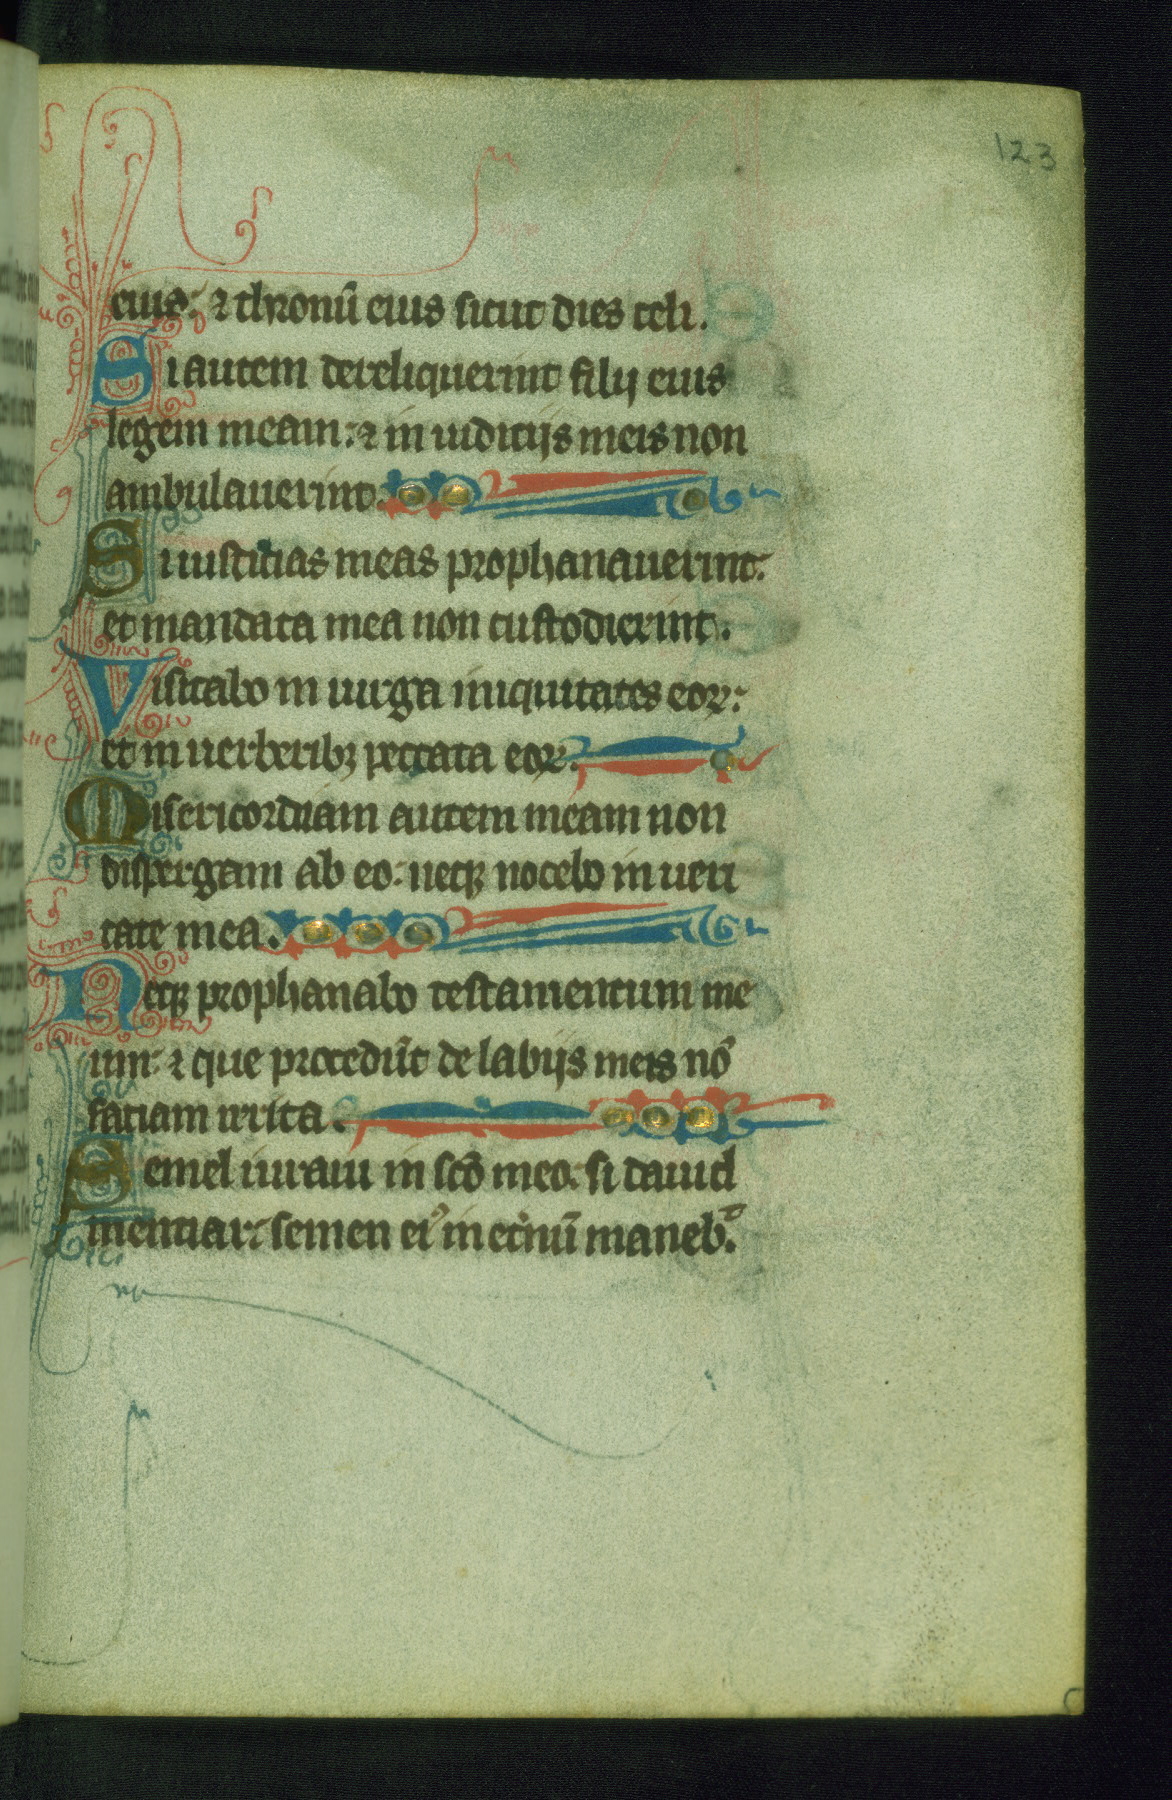 123
eius: ⁊ thronū eius sicut dies celi.
Si autem dereliquerint filij eius
legem meam: ⁊ in iudicijs meis non
ambulauerint.
Si iusticias meas prophanauerint:
et mandata mea non custodierint.
Visitabo in uirga iniquitates eoꝝ:
et in uerberibꝫ peccata eoꝝ.
Misericordiam autem meam non
dispergam ab eo: neqꝫ nocebo in ueri
tate mea.
Neqꝫ prophanabo testamentum me
um: ⁊ que procedūt de labijs meis nō
faciam irrita.
Semel iuraui in scō meo. si dauid
mentiar: semen eiꝰ in et̾nū maneb.ͭ